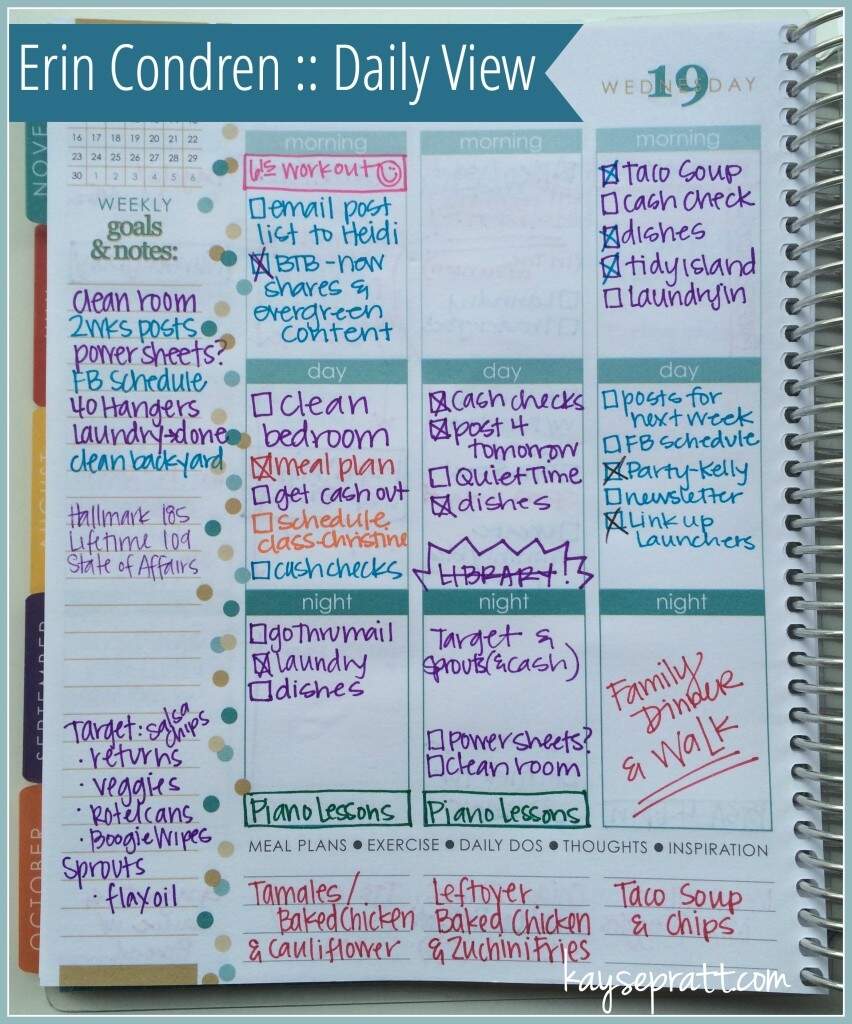 Erin Condren :: Daily View
WEDNESDAY
19
NOVE
16 17 18 19 20 21 22
23 24 25 26 27 28 29
30 1 2 3 4 5 6
WEEKLY
goals
& notes:
clean room
2wks posts
powersheets?
FB Schedule
40 Hangers
laundry→done
clean backyard
Hallmark 185
Lifetime 109
State of Affairs
Target: salsa
chips
· returns
· veggies
· Rotel cans
· Boogie Wipes
Sprouts
· flax oil
AUGUST
SEPTEMBER
OCTOBER
morning
workout
email post
list to Heidi
BTB - now
shares &
evergreen
content
day
clean
bedroom
meal plan
get cash out
schedule
class-christine
cash checks
night
go thru mail
laundry
dishes
Piano Lessons
morning
day
Cash checks
post 4
tomorrow
Quiet Time
dishes
LIBRARY!
night
Target &
Sprouts (& cash)
Powersheets?
Clean room
Piano Lessons
morning
Taco Soup
cash check
dishes
tidy island
laundry in
day
posts for
next week
FB schedule
Party-Kelly
newsletter
Link up
Launchers
night
Family
Dinner
& Walk
MEAL PLANS ● EXERCISE ● DAILY DOS ● THOUGHTS ● INSPIRATION
Tamales/
Baked Chicken
& Cauliflower
Leftover
Baked Chicken
& Zuchini Fries
Taco Soup
& Chips
kaysepratt.com